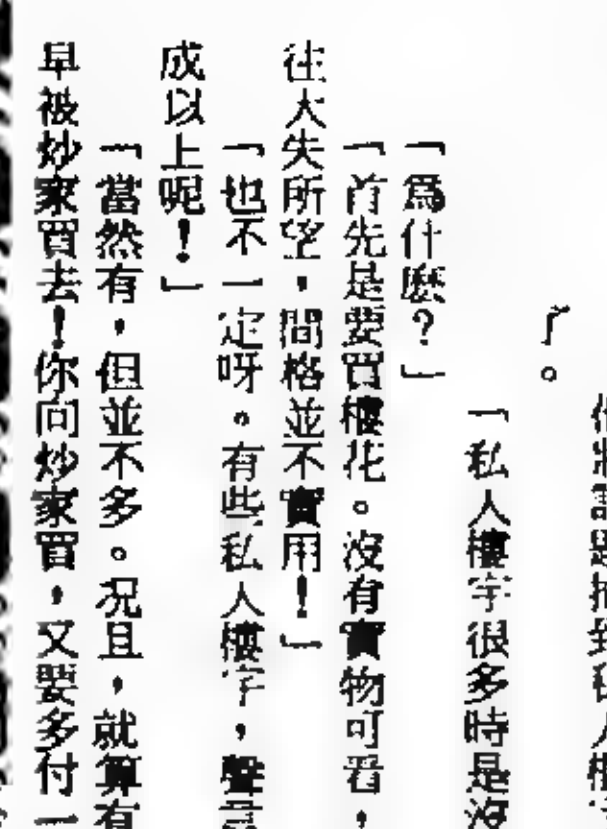 了。
「私人樓宇很多時是沒
「爲什麽？」
「首先是要買樓花。沒有實物可看，
往大失所望，間格並不實用！」
「也不一定呀。有些私人樓宇，聲
成以上呢！」
「當然有，但並不多。况且，就算有
早被炒家買去！你向炒家買，又要多付一